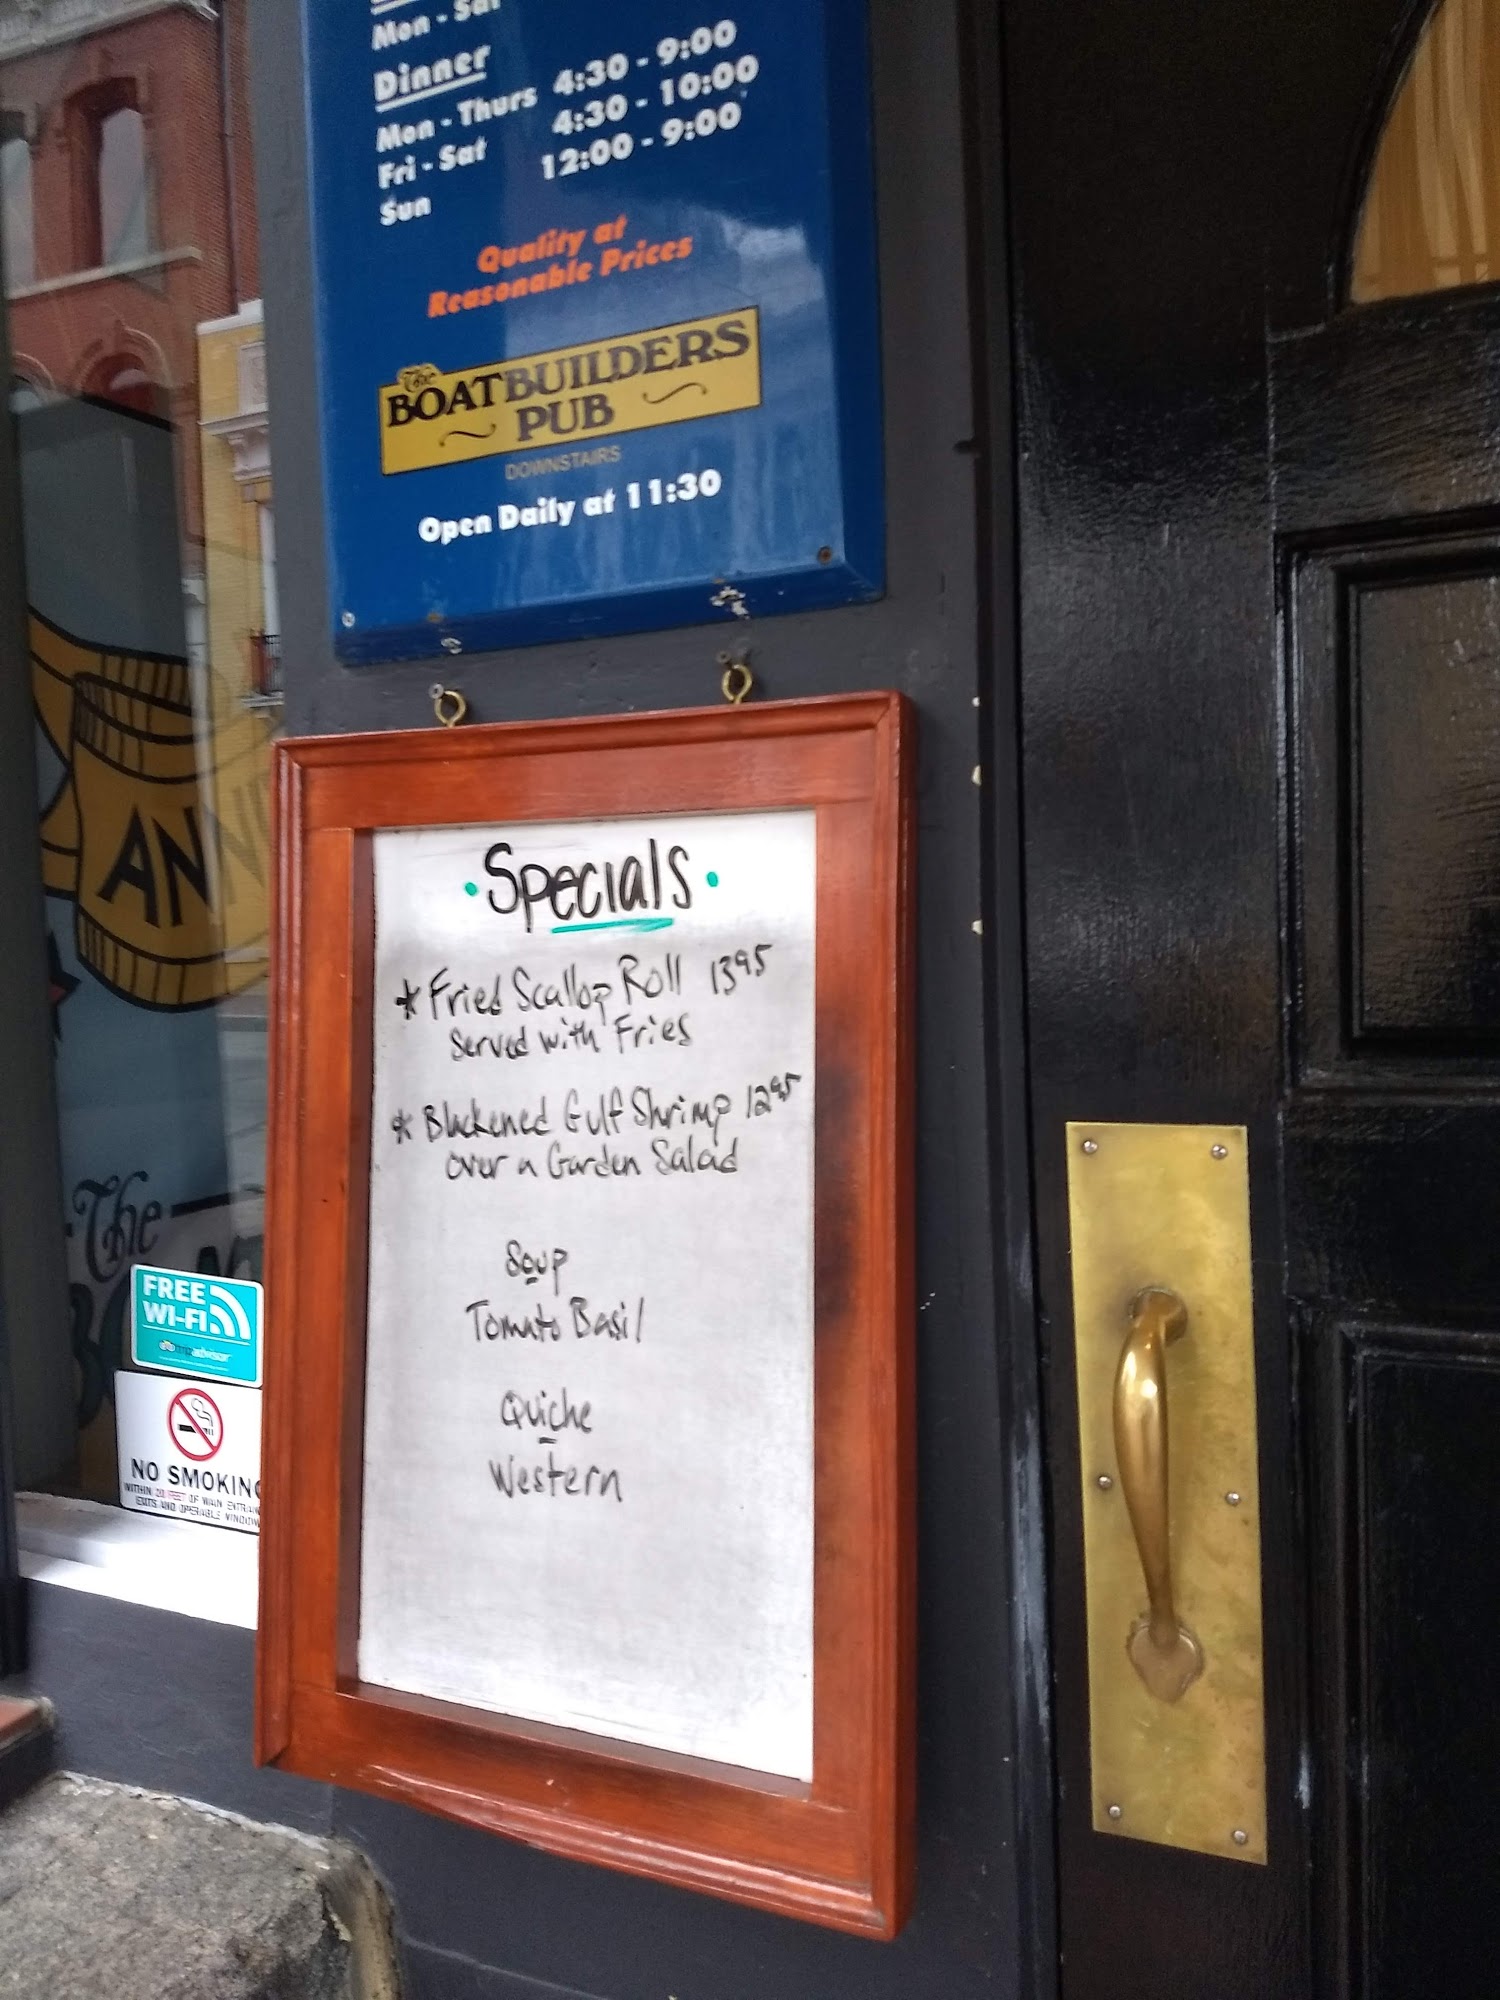 Mon - Sat
Dinner
Mon - Thurs 4:30 - 9:00
Fri - Sat 4:30 - 10:00
Sun 12:00 - 9:00
Quality at
Reasonable Prices
The
BOATBUILDERS
PUB
DOWNSTAIRS
Open Daily at 11:30
Specials
* Fried Scallop Roll 13 95
Served with Fries
* Blackened Gulf Shrimp 12 95
over a Garden Salad
Soup
Tomato Basil
Quiche
Western
ANN
The
FREE
WI-FI
tripadvisor
NO SMOKING
WITHIN 20 FEET OF MAIN ENTRAN
EXITS AND OPERABLE WINDOW